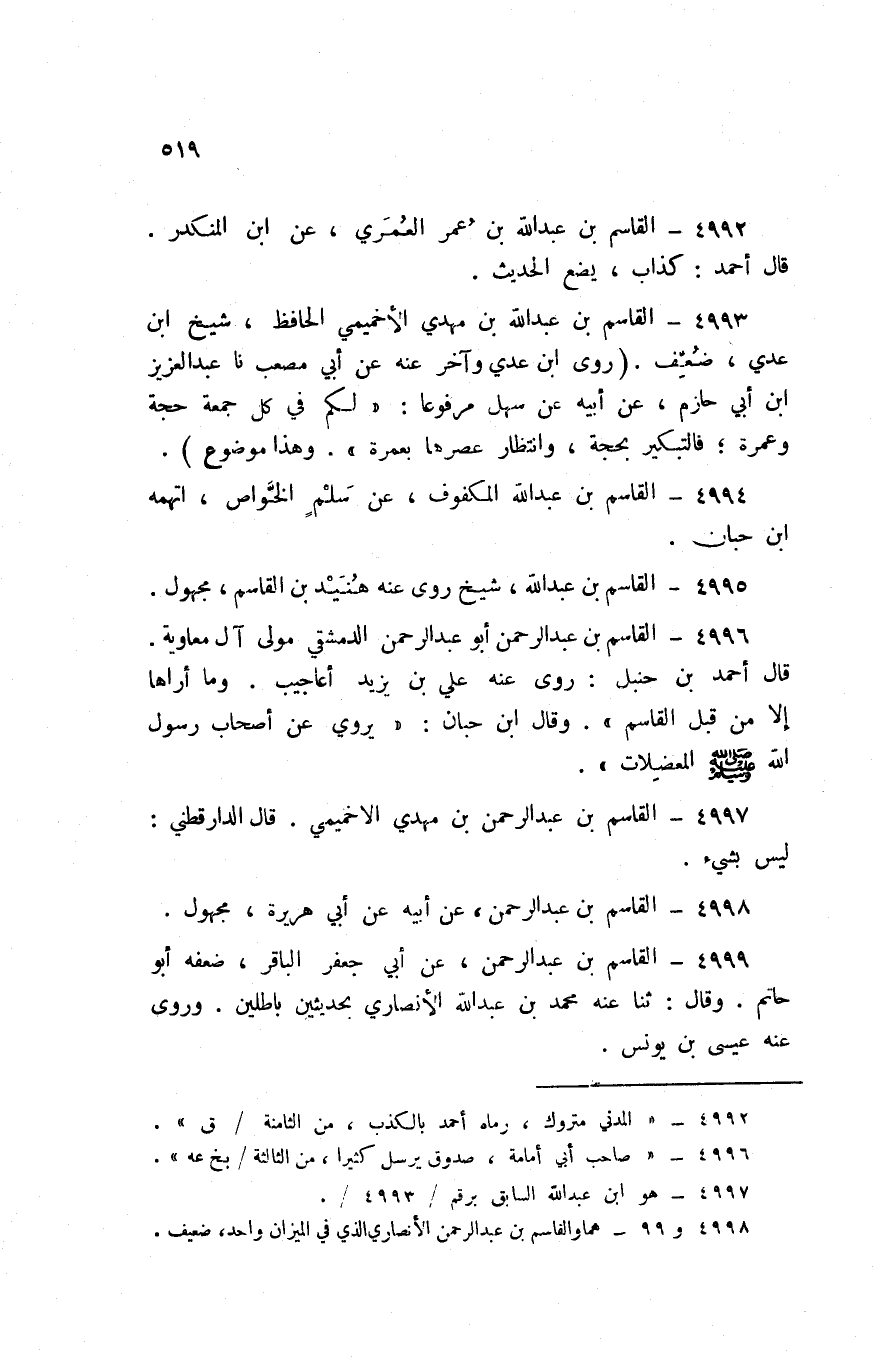 ٥١٩
٤٩٩٢ - القاسم بن عبدالله بن عمر العُمَري ، عن ابن المنكدر .
قال أحمد : كذاب ، يضع الحديث .
٤٩٩٣ - القاسم بن عبدالله بن مهدي الأخميمي الحافظ ، شيخ ابن
عدي ، ضُعِّف . ( روى ابن عدي وآخر عنه عن أبي مصعب نا عبدالعزيز
ابن أبي حازم ، عن أبيه عن سهل مرفوعا : « لكم في كل جمعة حجة
وعمرة ؛ فالتبكير بحجة ، وانتظار عصرها بعمرة » . وهذا موضوع ) .
٤٩٩٤ - القاسم بن عبدالله المكفوف ، عن سَلْمٍ الخَّواص ، اتهمه
ابن حبان .
٤٩٩٥ - القاسم بن عبدالله ، شيخ روى عنه هُنَيْد بن القاسم ، مجهول .
٤٩٩٦ - القاسم بن عبدالرحمن أبو عبدالرحمن الدمشقي مولى آل معاوية .
قال أحمد بن حنبل : روى عنه علي بن يزيد أعاجيب . وما أراها
إلا من قبل القاسم » . وقال ابن حبان : « يروي عن أصحاب رسول
الله ﷺ المعضلات » .
٤٩٩٧ - القاسم بن عبدالرحمن بن مهدي الاخميمي . قال الدارقطني :
ليس بشيء .
٤٩٩٨ - القاسم بن عبدالرحمن ، عن أبيه عن أبي هريرة ، مجهول .
٤٩٩٩ - القاسم بن عبدالرحمن ، عن أبي جعفر الباقر ، ضعفه أبو
حاتم . وقال : ثنا عنه محمد بن عبدالله الأنصاري بحديثين باطلين . وروى
عنه عيسى بن يونس .
٤٩٩٢ - « المدني متروك ، رماه أحمد بالكذب ، من الثامنة / ق » .
٤٩٩٦ - « صاحب أبي أمامة ، صدوق يرسل كثيرا ، من الثالثة / بخ عه » .
٤٩٩٧ - هو ابن عبدالله السابق برقم / ٤٩٩٣ / .
٤٩٩٨ و ٩٩ - هما والقاسم بن عبدالرحمن الأنصاري الذي في الميزان واحد ، ضعيف .